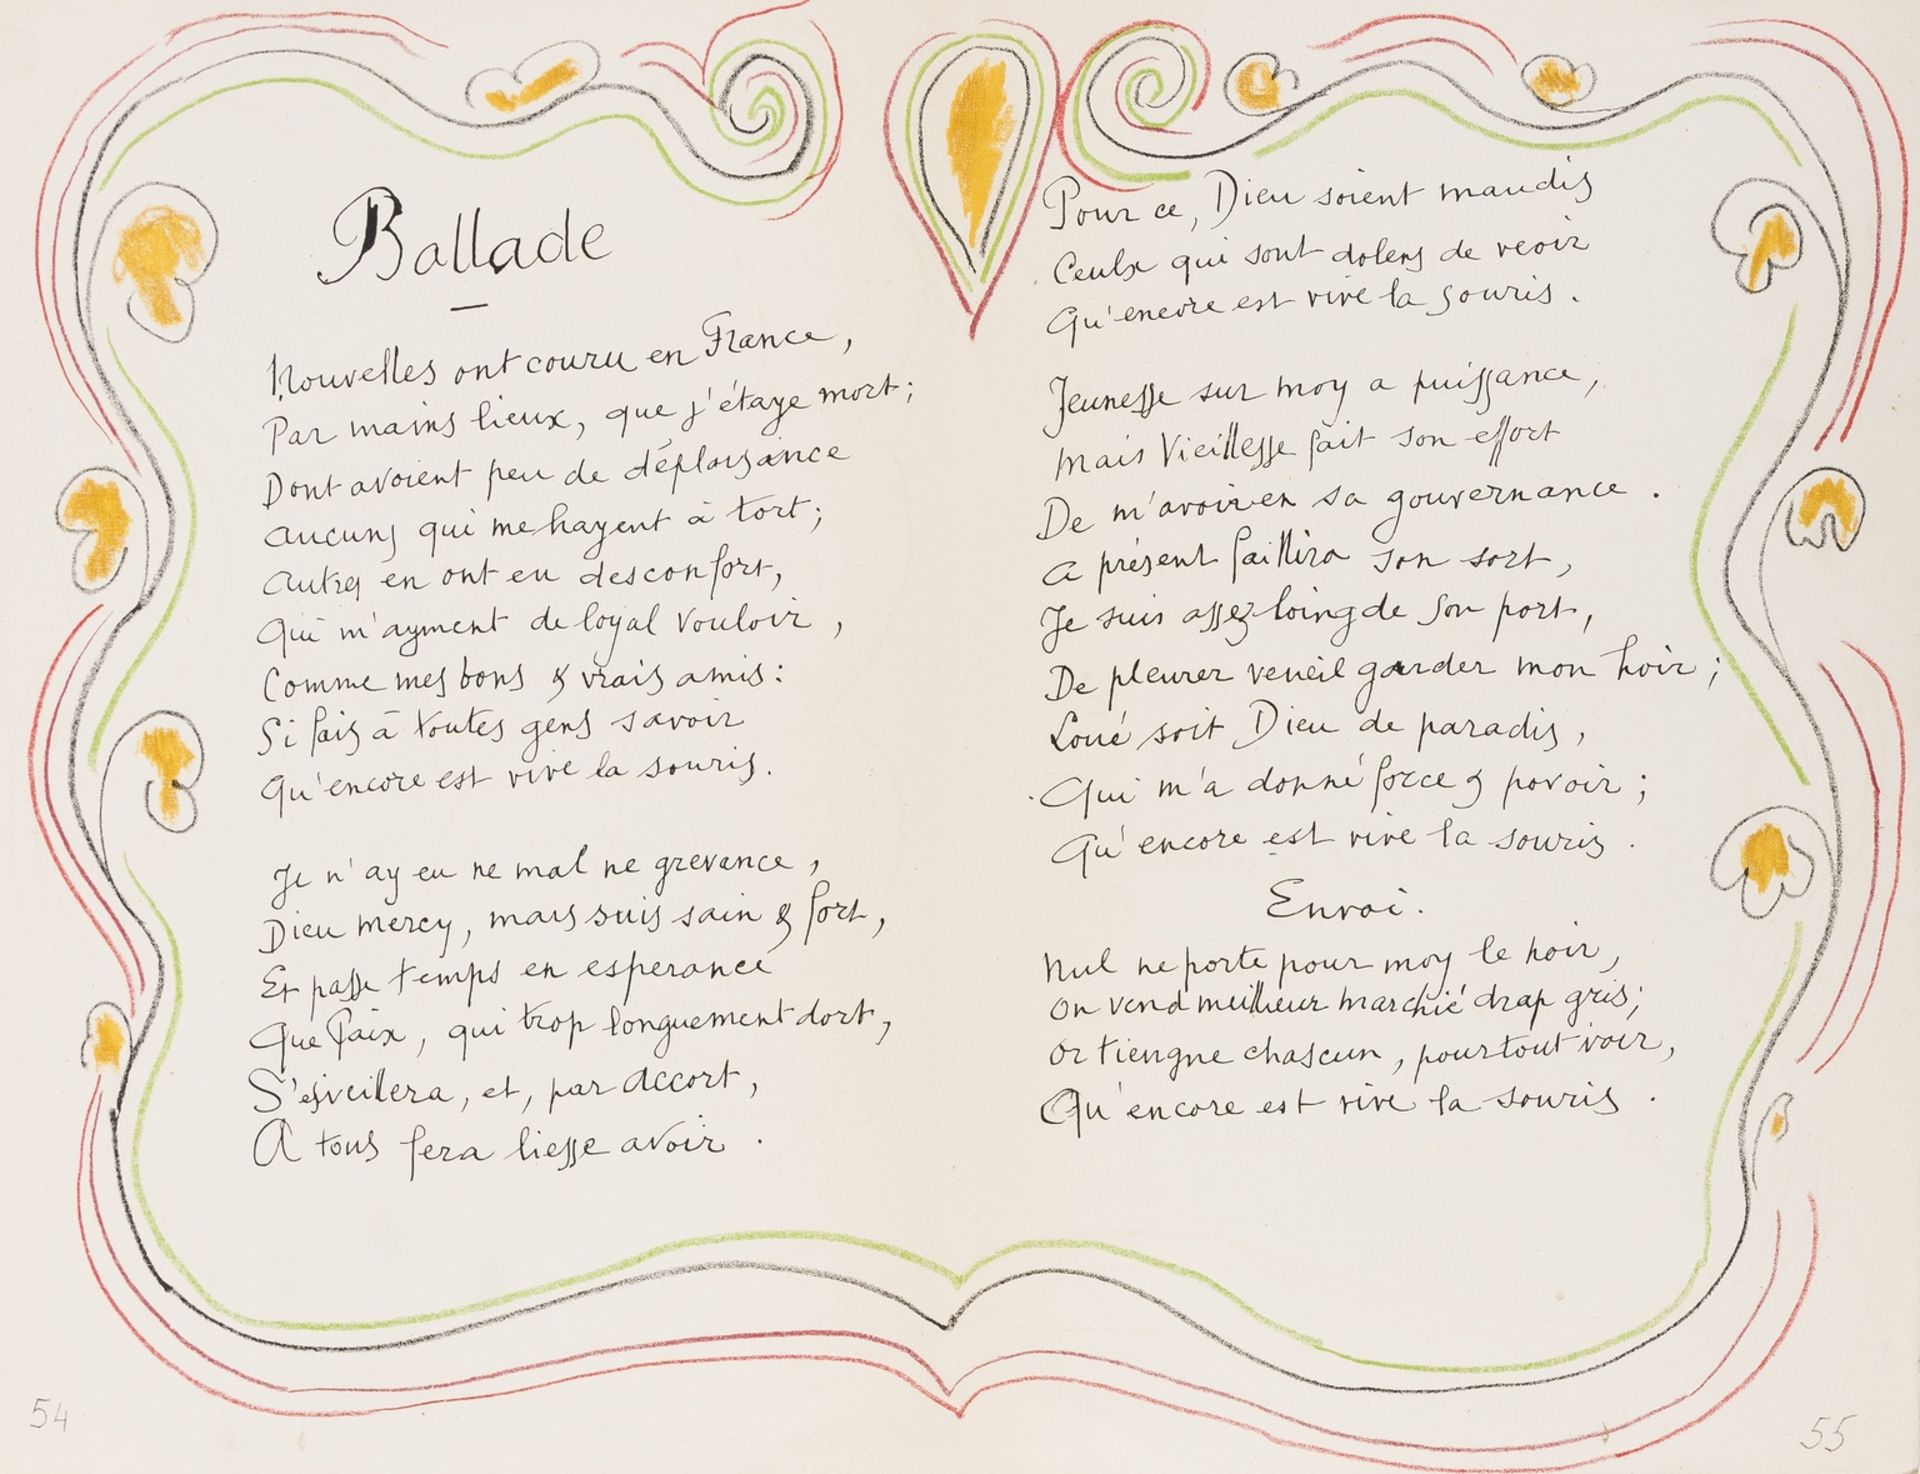 Ballade
Nouvelles ont couru en France,
Par mains lieux, que j'étaye mort;
Dont avoient peu de déplaisance
Aucuns qui me hayent à tort;
Autres en ont eu desconfort,
Qui m'ayment de loyal vouloir,
Comme mes bons & vrais amis:
Si fais à toutes gens savoir
Qu'encore est vive la souris.
Je n'ay eu ne mal ne grevance,
Dieu mercy, mais suis sain & fort,
Et passe temps en esperance
Que Paix, qui trop longuement dort,
S'esveillera, et, par Accort,
A tous fera liesse avoir.
Pour ce, Dieu soient maudis
Ceulx qui sont dolens de veoir
Qu'encore est vive la souris.
Jeunesse sur moy a puissance,
Mais Vieillesse fait son effort
De m'avoir en sa gouvernance.
A présent faillira son sort,
Je suis assez loing de son port,
De pleurer veueil garder mon hoir;
Loué soit Dieu de paradis,
Qui m'a donné force & povoir;
Qu'encore est vive la souris.
Envoi.
Nul ne porte pour moy le noir,
On vend meillieur marchié drap gris;
Or tiengne chascun, pour tout voir,
Qu'encore est vive la souris.
54
55